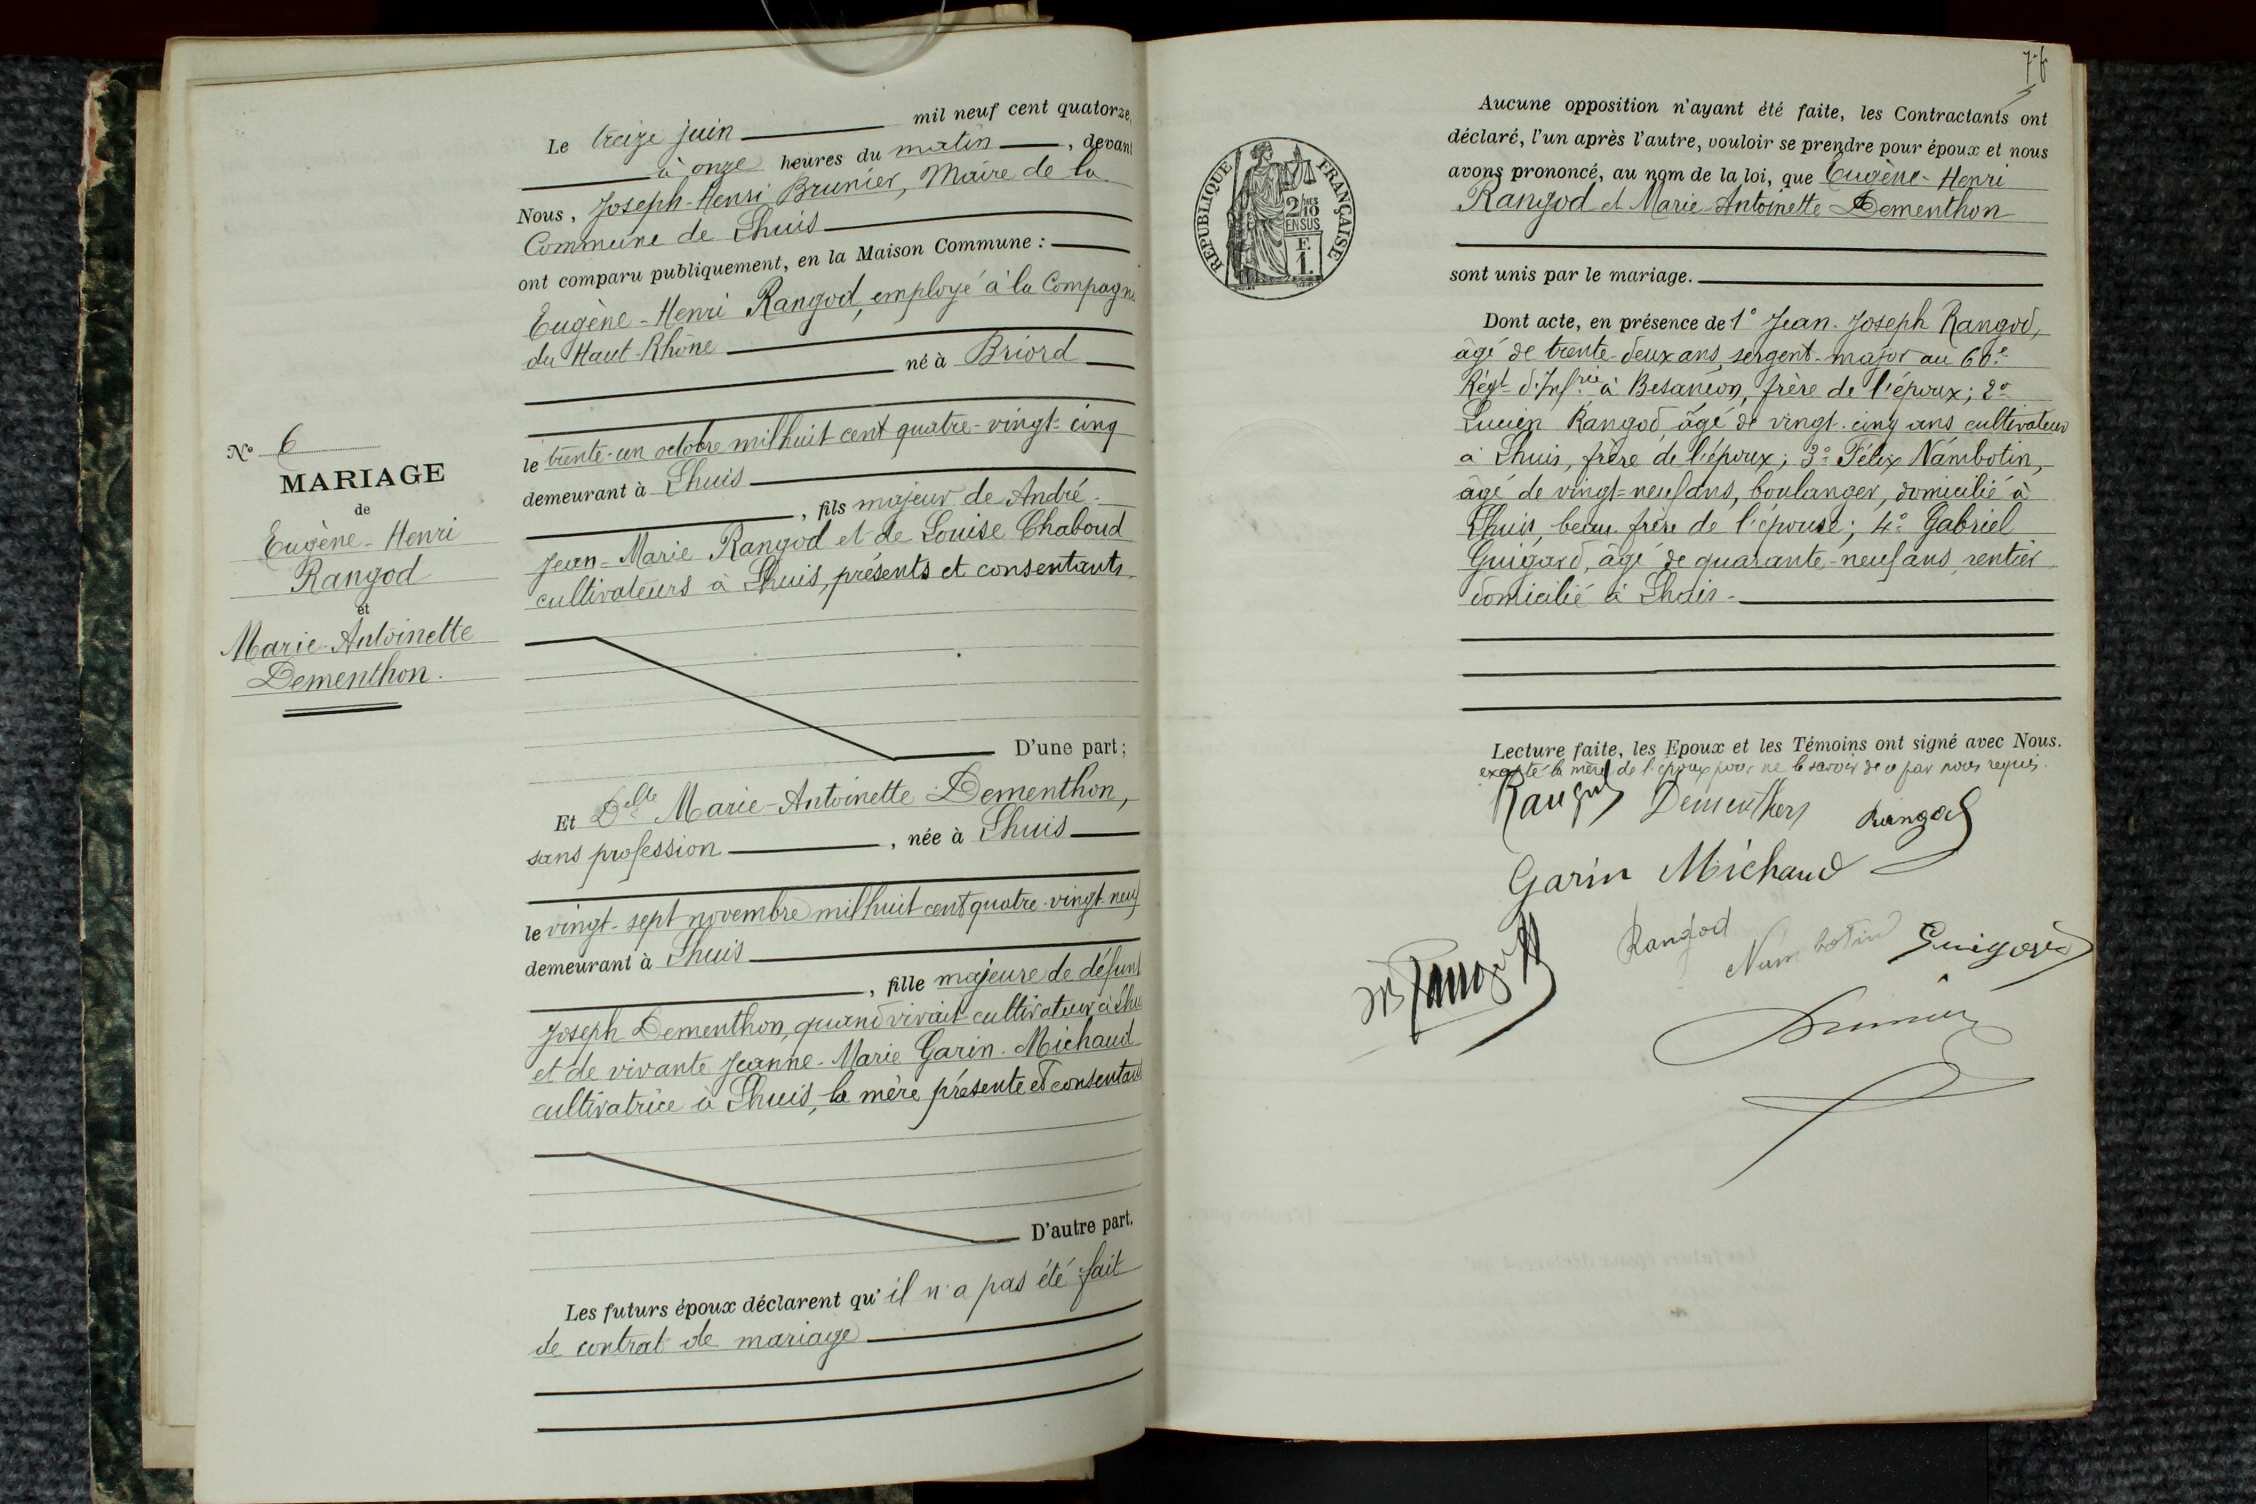 N° 6
MARIAGE
de
Eugène-Henri
Rangod
et
Marie-Antoinette
Dementhon.
Le treize juin mil neuf cent quatorze,
à onze heures du matin, devant
Nous, Joseph-Henri Brunier, Maire de la
Commune de Lhuis
ont comparu publiquement, en la Maison Commune :
Eugène-Henri Rangod, employé à la Compagnie
du Haut-Rhône
né à Briord
le trente-un octobre mil huit cent quatre-vingt-cinq
demeurant à Lhuis
, fils majeur de André-
Jean-Marie Rangod et de Louise Chaboud
cultivateurs à Lhuis, présents et consentants.
D'une part ;
Et Delle Marie-Antoinette Dementhon,
sans profession, née à Lhuis
le vingt-sept novembre mil huit cent quatre-vingt-neuf
demeurant à Lhuis
, fille majeure de défunt
Joseph Dementhon, quand vivait cultivateur à Lhu
et de vivante Jeanne-Marie Garin-Michaud
cultivatrice à Lhuis, la mère présente et consentant
D'autre part.
Les futurs époux déclarent qu'il n'a pas été fait
de contrat de mariage
Aucune opposition n'ayant été faite, les Contractants ont
déclaré, l'un après l'autre, vouloir se prendre pour époux et nous
avons prononcé, au nom de la loi, que Eugène-Henri
Rangod et Marie-Antoinette Dementhon
sont unis par le mariage.
REPUBLIQUE FRANÇAISE
2/10
EN SUS
F.
1.
Dont acte, en présence de 1° Jean-Joseph Rangod,
âgé de trente-deux ans, sergent-major au 60e
Régt d'Infrie à Besançon, frère de l'époux ; 2°
Lucien Rangod, âgé de vingt-cinq ans cultivateur
à Lhuis, frère de l'époux ; 3° Félix Nambotin,
âgé de vingt-neuf ans, boulanger, domicilié à
Lhuis, beau-frère de l'épouse ; 4° Gabriel
Guigard, âgé de quarante-neuf ans, rentier
domicilié à Lhuis.
Lecture faite, les Epoux et les Témoins ont signé avec Nous.
excepté la mère de l'époux pour ne le savoir de ce par nous requis.
Rangod Dementhon Rangod
Garin Michaud
Rangod Rangod Nambotin Guigard
Brunier